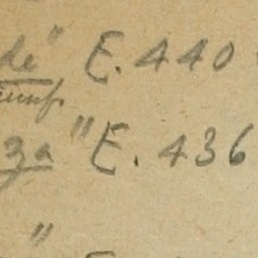 de" E. 440
za "E. 436
"